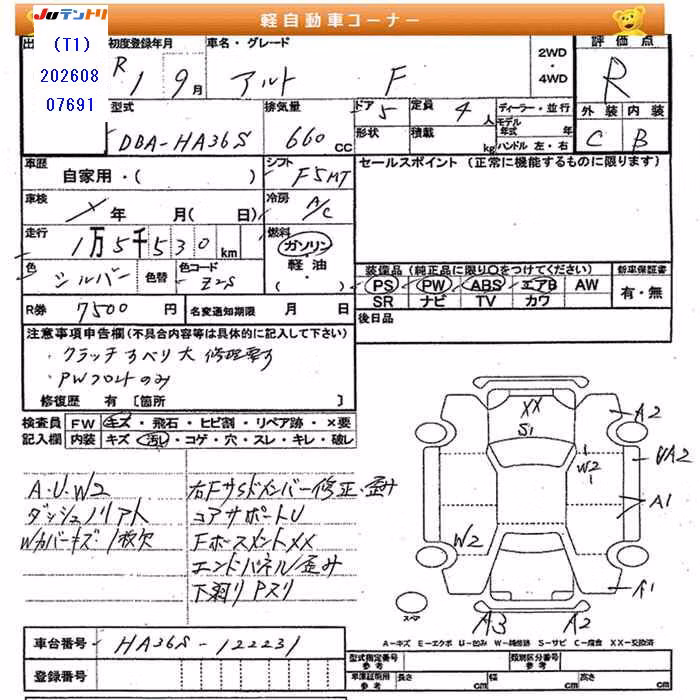 Juテントリ
軽自動車コーナー
(T1)
202608
07691
初度登録年月 R1 9月
車名・グレード アルト F
2WD・4WD
評価点 R
外装 内装
C B
型式 DBA-HA36S
排気量 660cc
ドア 5
定員 4人
形状
積載 kg
ディーラー・並行
モデル年式 年
ハンドル 左・右
車歴 自家用・( )
シフト F5MT
セールスポイント (正常に機能するものに限ります)
車検 年 月( 日)
冷房 A/C
走行 1万5千530km
燃料 ガソリン・軽・油
色 シルバー 色替
色コード Z2S
装備品(純正品に限り○をつけてください)
新車保証書
PS PW ABS エアB AW
SR ナビ TV カワ
有・無
R券 7500円
名変通知期限 月 日
後日品
注意事項申告欄(不具合内容等は具体的に記入して下さい)
・クラッチすべり大 修理要す
・PWフロントのみ
修復歴 有〔箇所 〕
検査員記入欄
FW キズ・飛石・ヒビ割・リペア跡・×要
内装 キズ・汚レ・コゲ・穴・スレ・キレ・破レ
A.U.W2
ダッシュノリアト
Wカバーキズ 1枚欠
右Fサイドメンバー修正、歪み
コアサポートU
FホースメントXX
エンドパネル歪み
下羽リPスリ
XX
S1
A2
UA2
W2
A1
W2
A1
A3 A2
スペア
A-キズ E-エクボ U-凹み W-補修跡 S-サビ C-腐食 XX-交換済
車台番号 HA36S-122231
登録番号
型式指定番号 参考
類別区分番号 参考
車庫証明用 参考
長さ cm 幅 cm 高さ cm